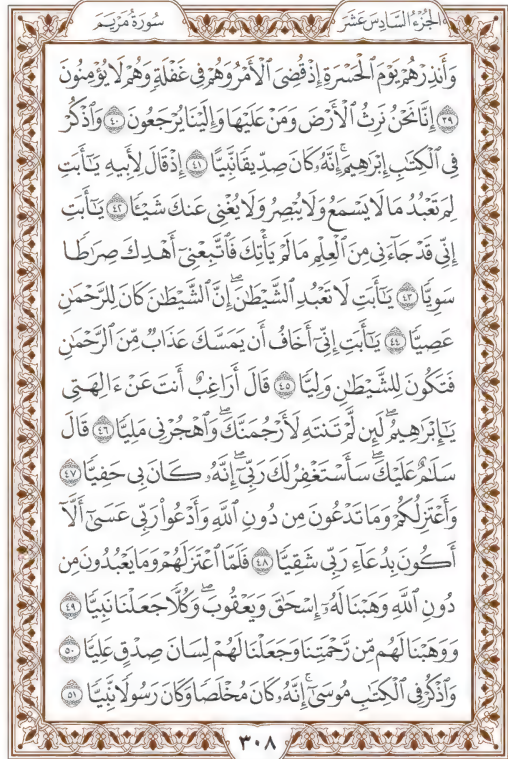 الجُزْءُ السَّادِسَ عَشَرَ
سُورَةُ مَرْيَمَ
وَأَنذِرْهُمْ يَوْمَ ٱلْحَسْرَةِ إِذْ قُضِىَ ٱلْأَمْرُ وَهُمْ فِى غَفْلَةٍ وَهُمْ لَا يُؤْمِنُونَ
٣٩ إِنَّا نَحْنُ نَرِثُ ٱلْأَرْضَ وَمَنْ عَلَيْهَا وَإِلَيْنَا يُرْجَعُونَ ٤٠ وَٱذْكُرْ
فِى ٱلْكِتَٰبِ إِبْرَٰهِيمَ ۚ إِنَّهُۥ كَانَ صِدِّيقًا نَّبِيًّا ٤١ إِذْ قَالَ لِأَبِيهِ يَٰٓأَبَتِ
لِمَ تَعْبُدُ مَا لَا يَسْمَعُ وَلَا يُبْصِرُ وَلَا يُغْنِى عَنكَ شَيْـًٔا ٤٢ يَٰٓأَبَتِ
إِنِّى قَدْ جَآءَنِى مِنَ ٱلْعِلْمِ مَا لَمْ يَأْتِكَ فَٱتَّبِعْنِىٓ أَهْدِكَ صِرَٰطًا
سَوِيًّا ٤٣ يَٰٓأَبَتِ لَا تَعْبُدِ ٱلشَّيْطَٰنَ ۖ إِنَّ ٱلشَّيْطَٰنَ كَانَ لِلرَّحْمَٰنِ
عَصِيًّا ٤٤ يَٰٓأَبَتِ إِنِّىٓ أَخَافُ أَن يَمَسَّكَ عَذَابٌ مِّنَ ٱلرَّحْمَٰنِ
فَتَكُونَ لِلشَّيْطَٰنِ وَلِيًّا ٤٥ قَالَ أَرَاغِبٌ أَنتَ عَنْ ءَالِهَتِى
يَٰٓإِبْرَٰهِيمُ ۖ لَئِن لَّمْ تَنتَهِ لَأَرْجُمَنَّكَ ۖ وَٱهْجُرْنِى مَلِيًّا ٤٦ قَالَ
سَلَٰمٌ عَلَيْكَ ۖ سَأَسْتَغْفِرُ لَكَ رَبِّىٓ ۖ إِنَّهُۥ كَانَ بِى حَفِيًّا ٤٧
وَأَعْتَزِلُكُمْ وَمَا تَدْعُونَ مِن دُونِ ٱللَّهِ وَأَدْعُوا۟ رَبِّى عَسَىٰٓ أَلَّآ
أَكُونَ بِدُعَآءِ رَبِّى شَقِيًّا ٤٨ فَلَمَّا ٱعْتَزَلَهُمْ وَمَا يَعْبُدُونَ مِن
دُونِ ٱللَّهِ وَهَبْنَا لَهُۥٓ إِسْحَٰقَ وَيَعْقُوبَ ۖ وَكُلًّا جَعَلْنَا نَبِيًّا ٤٩
وَوَهَبْنَا لَهُم مِّن رَّحْمَتِنَا وَجَعَلْنَا لَهُمْ لِسَانَ صِدْقٍ عَلِيًّا ٥٠
وَٱذْكُرْ فِى ٱلْكِتَٰبِ مُوسَىٰٓ ۚ إِنَّهُۥ كَانَ مُخْلَصًا وَكَانَ رَسُولًا نَّبِيًّا ٥١
٣٠٨